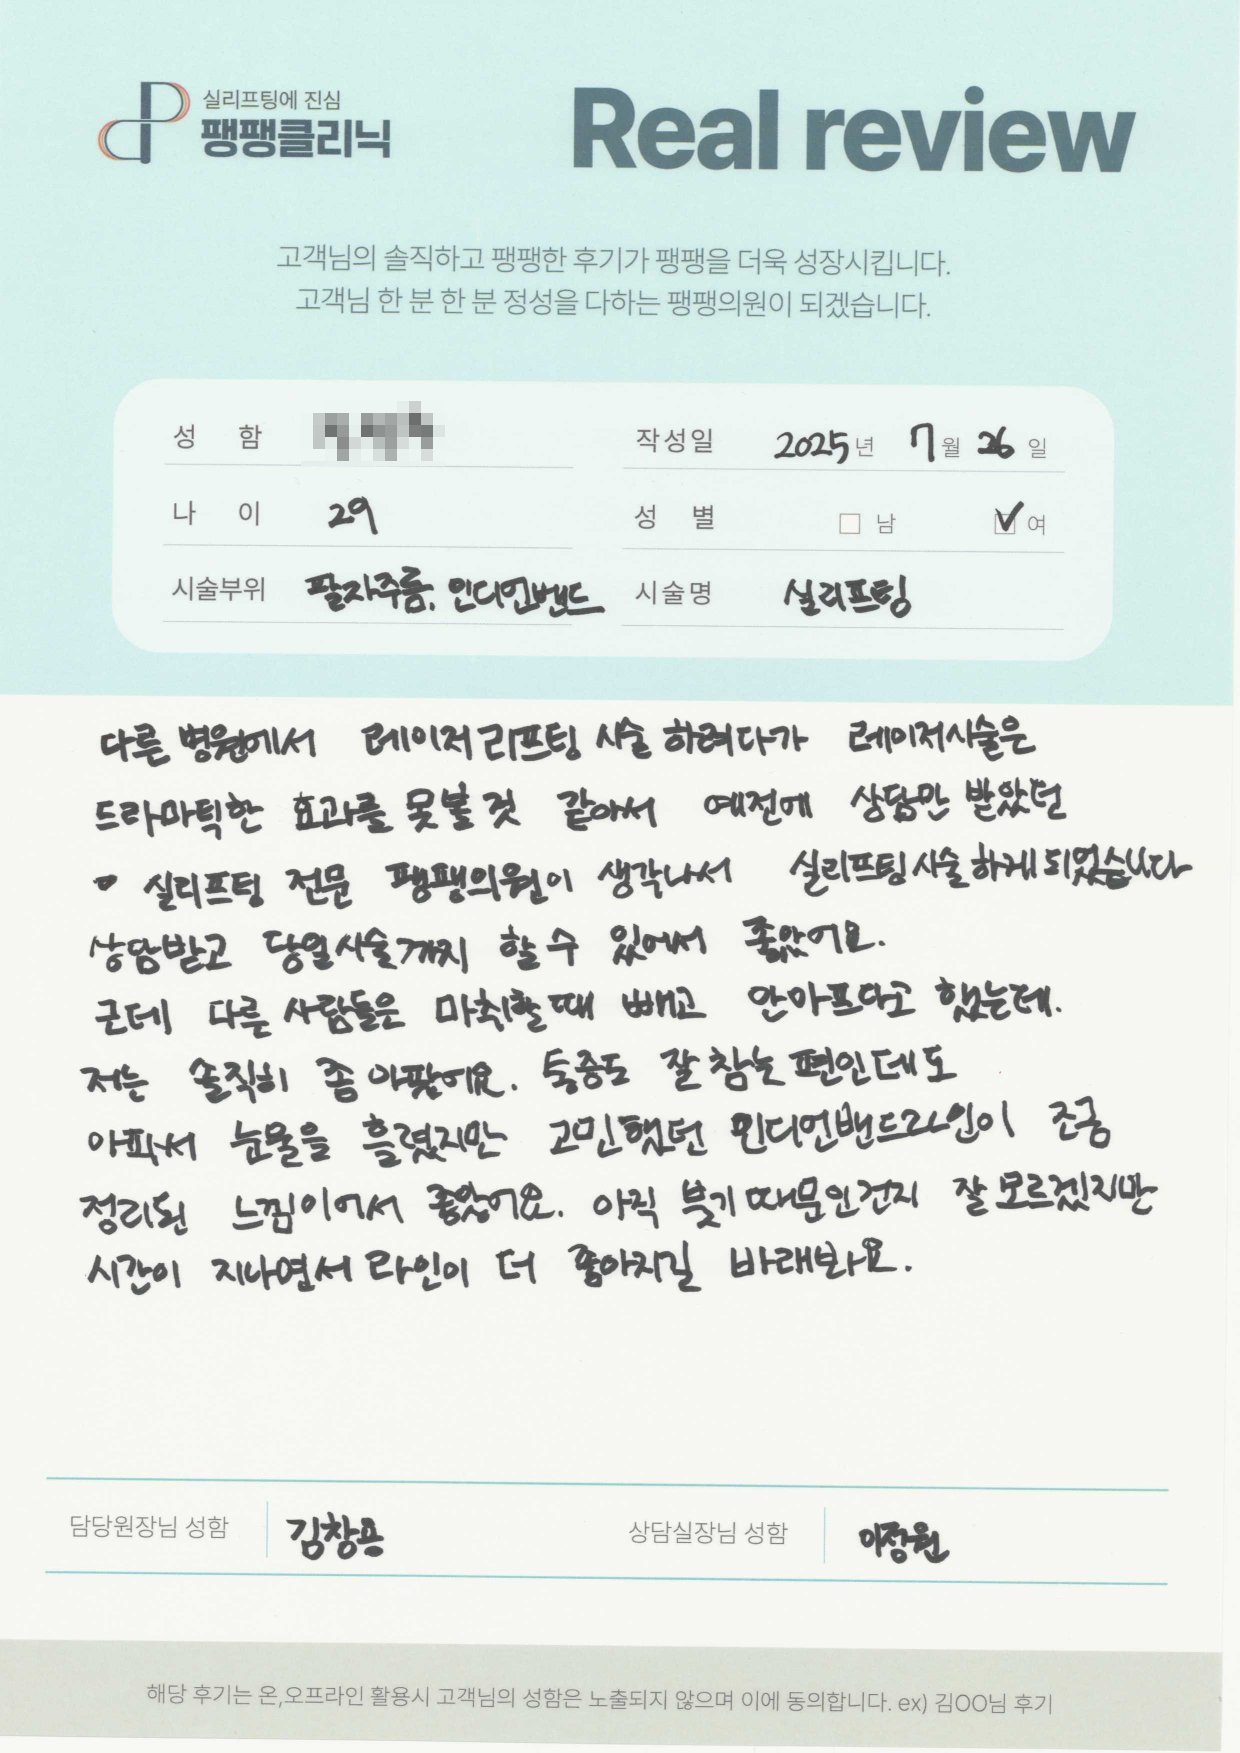 실리프팅에 진심
팽팽클리닉
Real review
고객님의 솔직하고 팽팽한 후기가 팽팽을 더욱 성장시킵니다.
고객님 한 분 한 분 정성을 다하는 팽팽의원이 되겠습니다.
성 함
작성일 2025년 7월 26일
나 이 29
성 별 남 여
시술부위 팔자주름, 인디언밴드
시술명 실리프팅
다른 병원에서 레이저리프팅 시술 하려다가 레이저시술은
드라마틱한 효과를 못볼것 같아서 예전에 상담만 받았던
실리프팅 전문 팽팽의원이 생각나서 실리프팅시술하게되었습니다
상담받고 당일시술까지 할수 있어서 좋았어요.
근데 다른 사람들은 마취할때 빼고 안아프다고 했는데.
저는 솔직히 좀 아팠어요. 통증도 잘 참는 편인데도
아파서 눈물을 흘렸지만 고민했던 인디언밴드라인이 조금
정리된 느낌이어서 좋았어요. 아직 붓기때문인건지 잘모르겠지만
시간이 지나면서 라인이 더 좋아지길 바래봐요.
담당원장님 성함 김창용
상담실장님 성함 이정원
해당 후기는 온,오프라인 활용시 고객님의 성함은 노출되지 않으며 이에 동의합니다. ex) 김OO님 후기